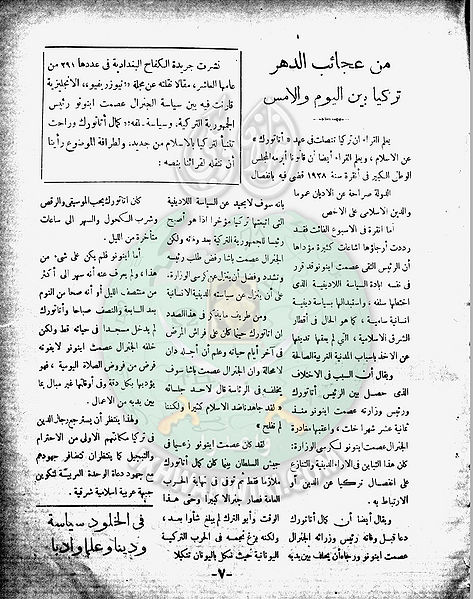 من عجائب الدهر
تركيا بين اليوم والأمس
نشرت جريدة الكفاح البغدادية في عددها ٢٩١ من
عامها العاشر، مقالا نقلته عن مجلة «نيوزريفيو» الانجليزية
قارنت فيه بين سياسة الجنرال عصمت اينونو رئيس
الجمهورية التركية، وسياسة سلفه «كمال أتاتورك» وراحت
تتنبأ لتركيا بالاسلام من جديد، ولطرافة الموضوع رأينا
أن ننقله لقرائنا بنصه :
يعلم القراء أن تركيا تنصلت في عهد « أتاتورك »
عن الاسلام، ويعلم القراء أيضا أن قانونا أبرمه المجلس
الوطني الكبير في أنقرة سنة ١٩٣٨ قضى فيه بانفصال
الدولة صراحة عن الأديان عموما
والدين الاسلامى على الأخص
أما أنقرة في الأسبوع الفائت فقد
رددت أرجاؤها اشاعات كثيرة مؤداها
أن الرئيس التقى عصمت اينونو قد قرر
في نفسه ابادة السياسة اللادينية الذى
اختطها سلفه . واستبدالها بسياسة دينية
انسانية سامية، كما هو الحال في أقطار
الشرق الاسلامية، التى لم يعقها تدينها
عن الأخذ بأسباب المدنية الغربية الصالحة
ويقال أن السبب في الاختلاف
الذى حصل بين الرئيس أتاتورك
ورئيس وزارته عصمت اينونو منذ
ثمانية عشر شهرا خات، وأعقبها مغادرة
الجنرال عصمت اينونو لكرسى الوزارة:
كان هذا التباين في الآراء الدينية والتنازع
على انفصال تركيا عن الدين أو
الارتباط به .
ويقال أيضا أن كمال أتاتورك
دعا قبيل وفاته رئيس وزرائه الجنرال
عصمت اينونو ورجاه أن يحلف بين يديه
بانه سوف لا يحيد عن السياسة اللادينية
التى اتبعتها تركيا مؤخرا اذا هو أصبح
رئيسا للجمهورية التركية بعد وفاته ولكن
الجنرال عصمت باشا رفض طلب رئيسه
وتشدد وفضل أن ينزل عن كرسى الوزارة.
على أن ينزل عن سياسته الدينية الانسانية
ومن طريف ما يذكر في هذا الصدد
ان أتاتورك حينما كان على فراش المرض
في آخر أيام حياته وعلم أن أجله دان
لا محالة وان الجنرال عصمت باشا سوف
يخلفه في الرئاسة قال لأحد جلسائه
« لقد جاهدنا ضد الاسلام كثيرا ولكننا
لم نفلح »
لقد كان عصمت اينونو زعيما في
جيش السلطان بينما كان كمال أتاتورك
ملازما فقط ثم توفى في نهاية الحرب
العامة فصار جنرالا كبيرا وحتى هذا
الوقت وأبو الترك لم يبلغ شأوا بعد،
ولكنه بزغ نجمه في الحرب التركية
اليونانية حيث نكل باليونان تنكيلا
كان أتاتورك يحب الموسيقى والرقص
وشرب الكحول والسهر الى ساعات
متأخرة من الليل .
أما اينونو فلم يكن على شيء من
هذا ، ولم يعرف عنه أنه سهر الى أكثر
من منتصف الليل أو أنه صحا من النوم
بعد السابعة والنصف صباحا وأتاتورك
لم يدخل مسجدا في حياته قط ولكن
خلفه الجنرال عصمت اينونو لا يفوته
فرض من فروض الصلاة اليومية ، فهو
يؤديها بكل دقة وفى أوقاتها غير مبال بما
بين يديه من الأعمال .
ولهذا ينتظر أن يسترجع رجال الدين
في تركيا مكانتهم الأولى من الاحترام
والتبجيل كما ينتظر أن يتضافر جهودهم
مع جهود دعاة الوحدة العربية لتكوين
جبهة عربية اسلامية شرقية .
في الخلود سياسة
ودينا وعلما وأدبا
— ٧ —